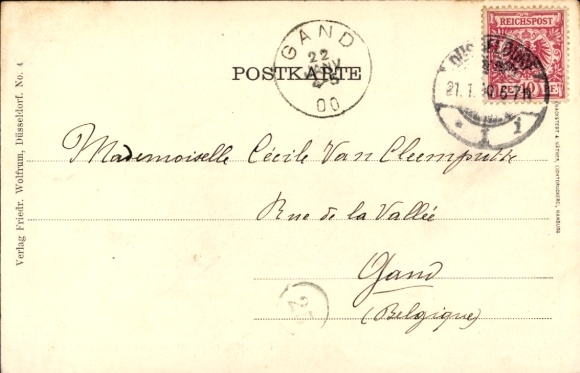 REICHSPOST
GAND
22
JANV
00
POSTKARTE
21.1. 6-7N
1
Mademoiselle Cécile Van Cleemputte
Rue de la Vallée
Gand
(Belgique)
Verlag Friedr. Wolfrum, Düsseldorf. No. 4